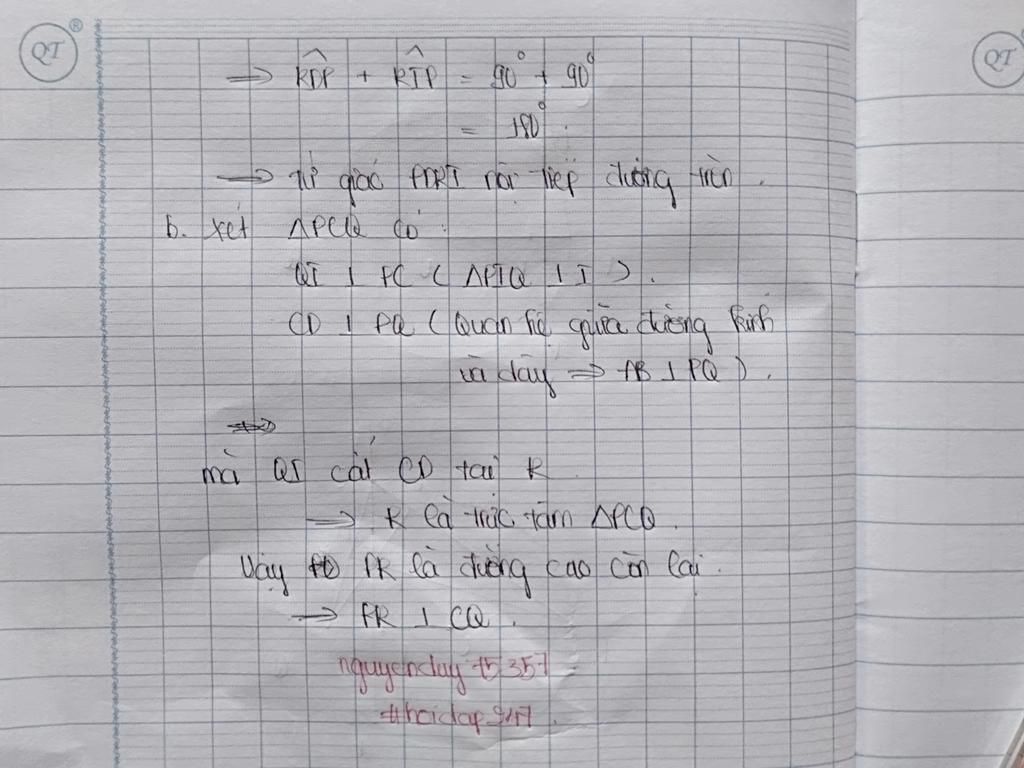 QT ® QT
⟹ K̂DP + K̂IP = 90° + 90°
= 180°.
⟹ Tứ giác PDKI nội tiếp đường tròn.
b. Xét ΔPCQ có:
QI ⊥ PC ( ΔPIQ ⊥ I ).
CD ⊥ PQ ( Quan hệ giữa đường kính
và dây ⟹ AB ⊥ PQ ).
mà QI cắt CD tại K
⟹ K là trực tâm ΔPCQ.
Vậy PK là đường cao còn lại.
⟹ PK ⊥ CQ.
nguyenduy75357
#hoidap247.